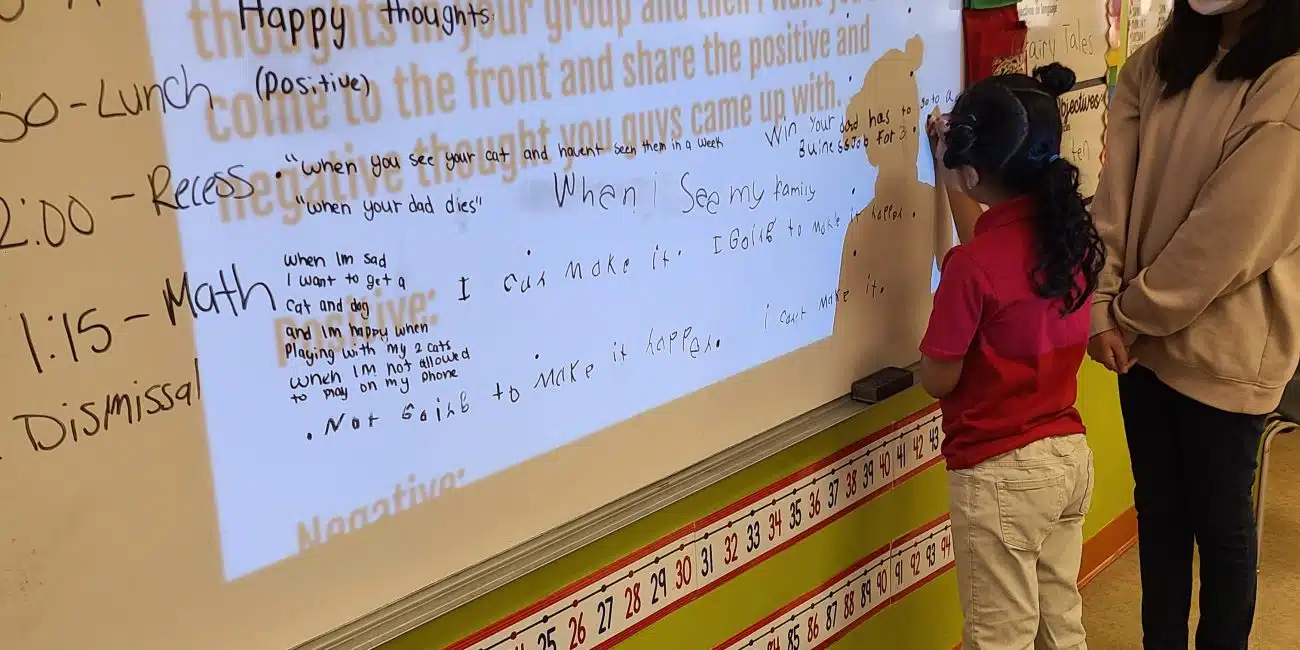 Happy thoughts
(Positive)
thoughts in your group and then I want you
come to the front and share the positive and
negative thought you guys came up with.
Positive:
Negative:
30-Lunch
2:00-Recess
1:15-Math
Dismissal
"when you see your cat and havent seen them in a week
"when your dad dies"
when Im sad
I want to get a
cat and dog
and Im happy when
Playing with my 2 cats
wneh Im not allowed
to play on my phone
Win your dad has to go to a
BuinessJob for 3.
When i See my family
I can make it. I GoinG to make it happen.
. Not GoinG to Make it happen.
i cant make it.
Fairy Tales
Objectives
ten
25 26 27 28 29 30 31 32 33 34 35 36 37 38 39 40 41 42 43
84 85 86 87 88 89 90 91 92 93 94